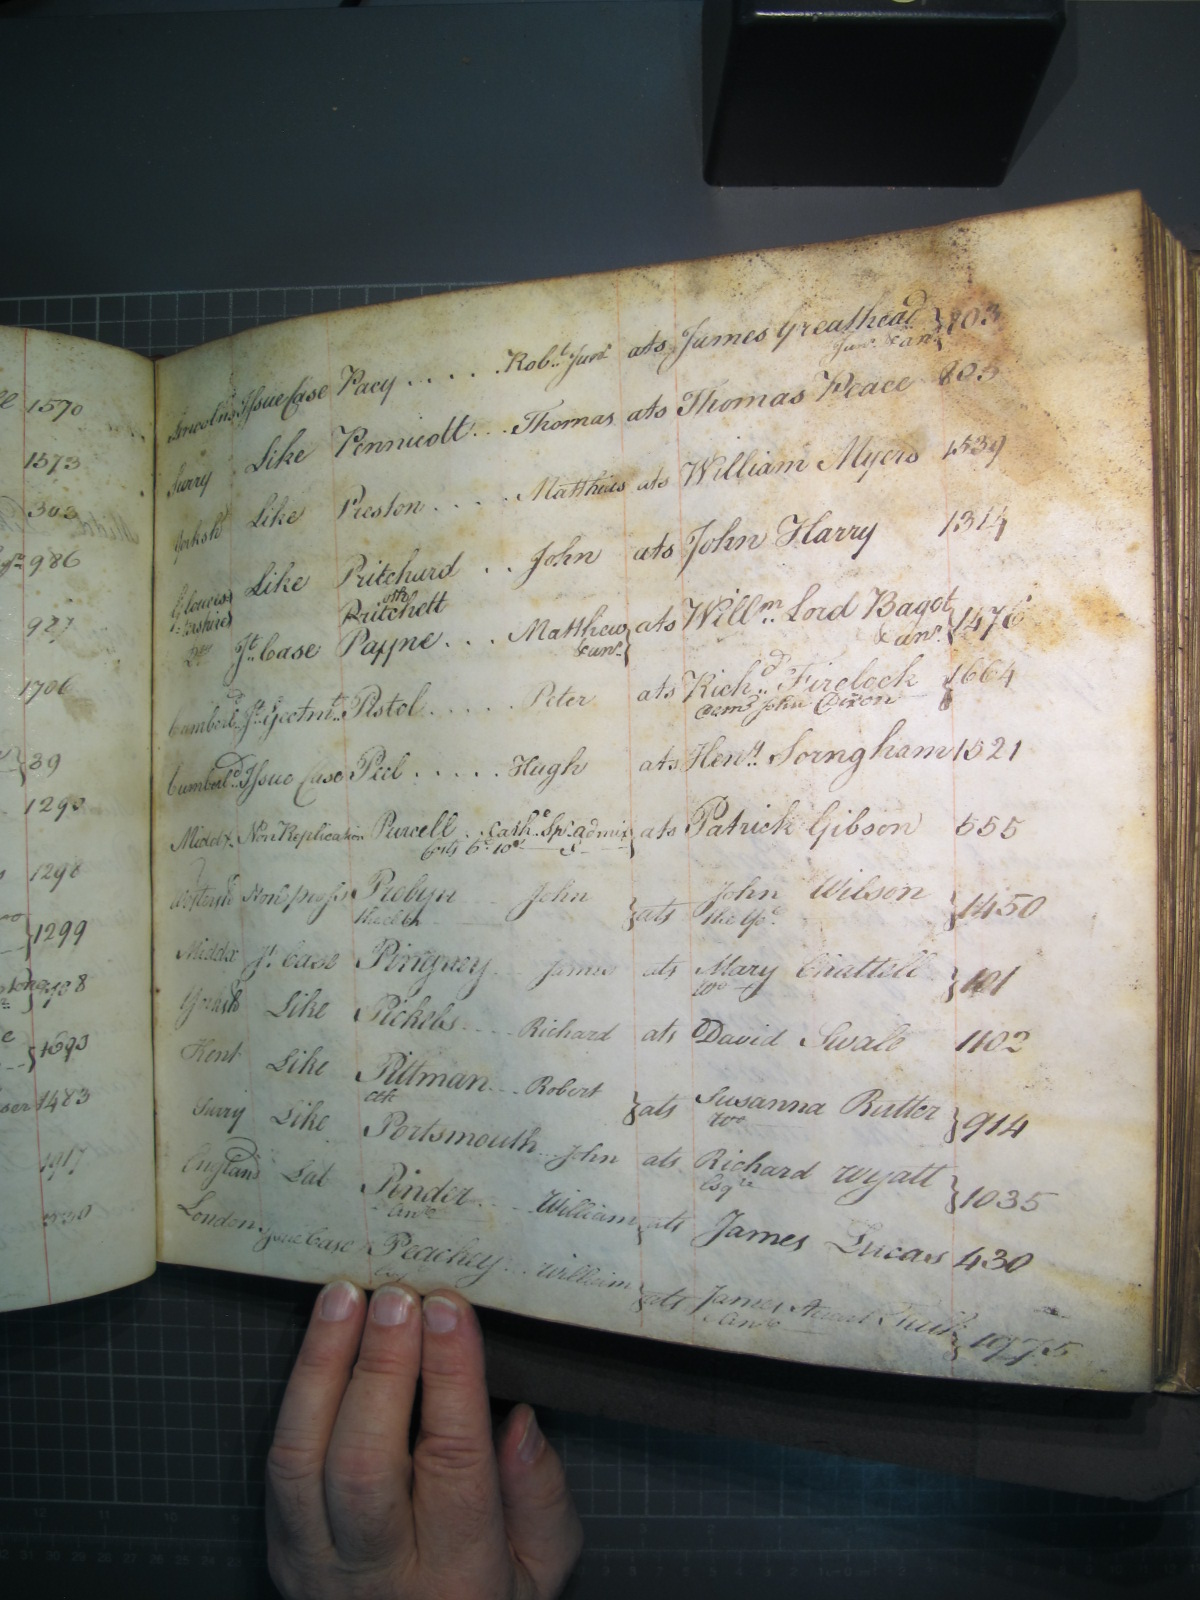 1570
1573
303
986
927
1706
39
1293
1298
1299
1693
1473
1917
Lincolns Issue Case Pacy . . . . . Robt. Junr. ats James Greathead } 803
Junr. & anr.
Surry Like Pennicott . . . Thomas ats Thomas Peace 805
Yorksh Like Preston . . . . Matthias ats William Myers 1539
Glouces Like Pritchard . . John ats John Harry 1314
=tershire oth Pritchett
Do Jt. Case Payne . . . Matthew & anr. } ats Willm. Lord Bagot & anr. } 1476
Cumberld Jt. Ejectmt. Pistol . . . . . Peter ats Richd. Firelock 1664
Demd John Dixon
Cumberld. Issue Case Peel . . . . . Hugh ats Heny. Sorngham 1521
Middx. Non Replication Purcell . . Cathe. Sps. admix } ats Patrick Gibson 555
Non pross Probyn John } ats John Wilson } 1450
Middx Jt. Case Pirigney James ats Mary Chattell } 101
wo
Yorksh Like Pickels . . . . Richard ats David Swale 1102
Kent Like Pittman . . . Robert } ats Susanna Rutter } 914
etc wo
Surry Like Portsmouth . . John ats Richard Wyatt } 1035
Esqre
England Lat Pinder . . . William ats James Lucas 430
& Anr
London Issue Case Peachey . . . William } ats James } 1775
& Anr